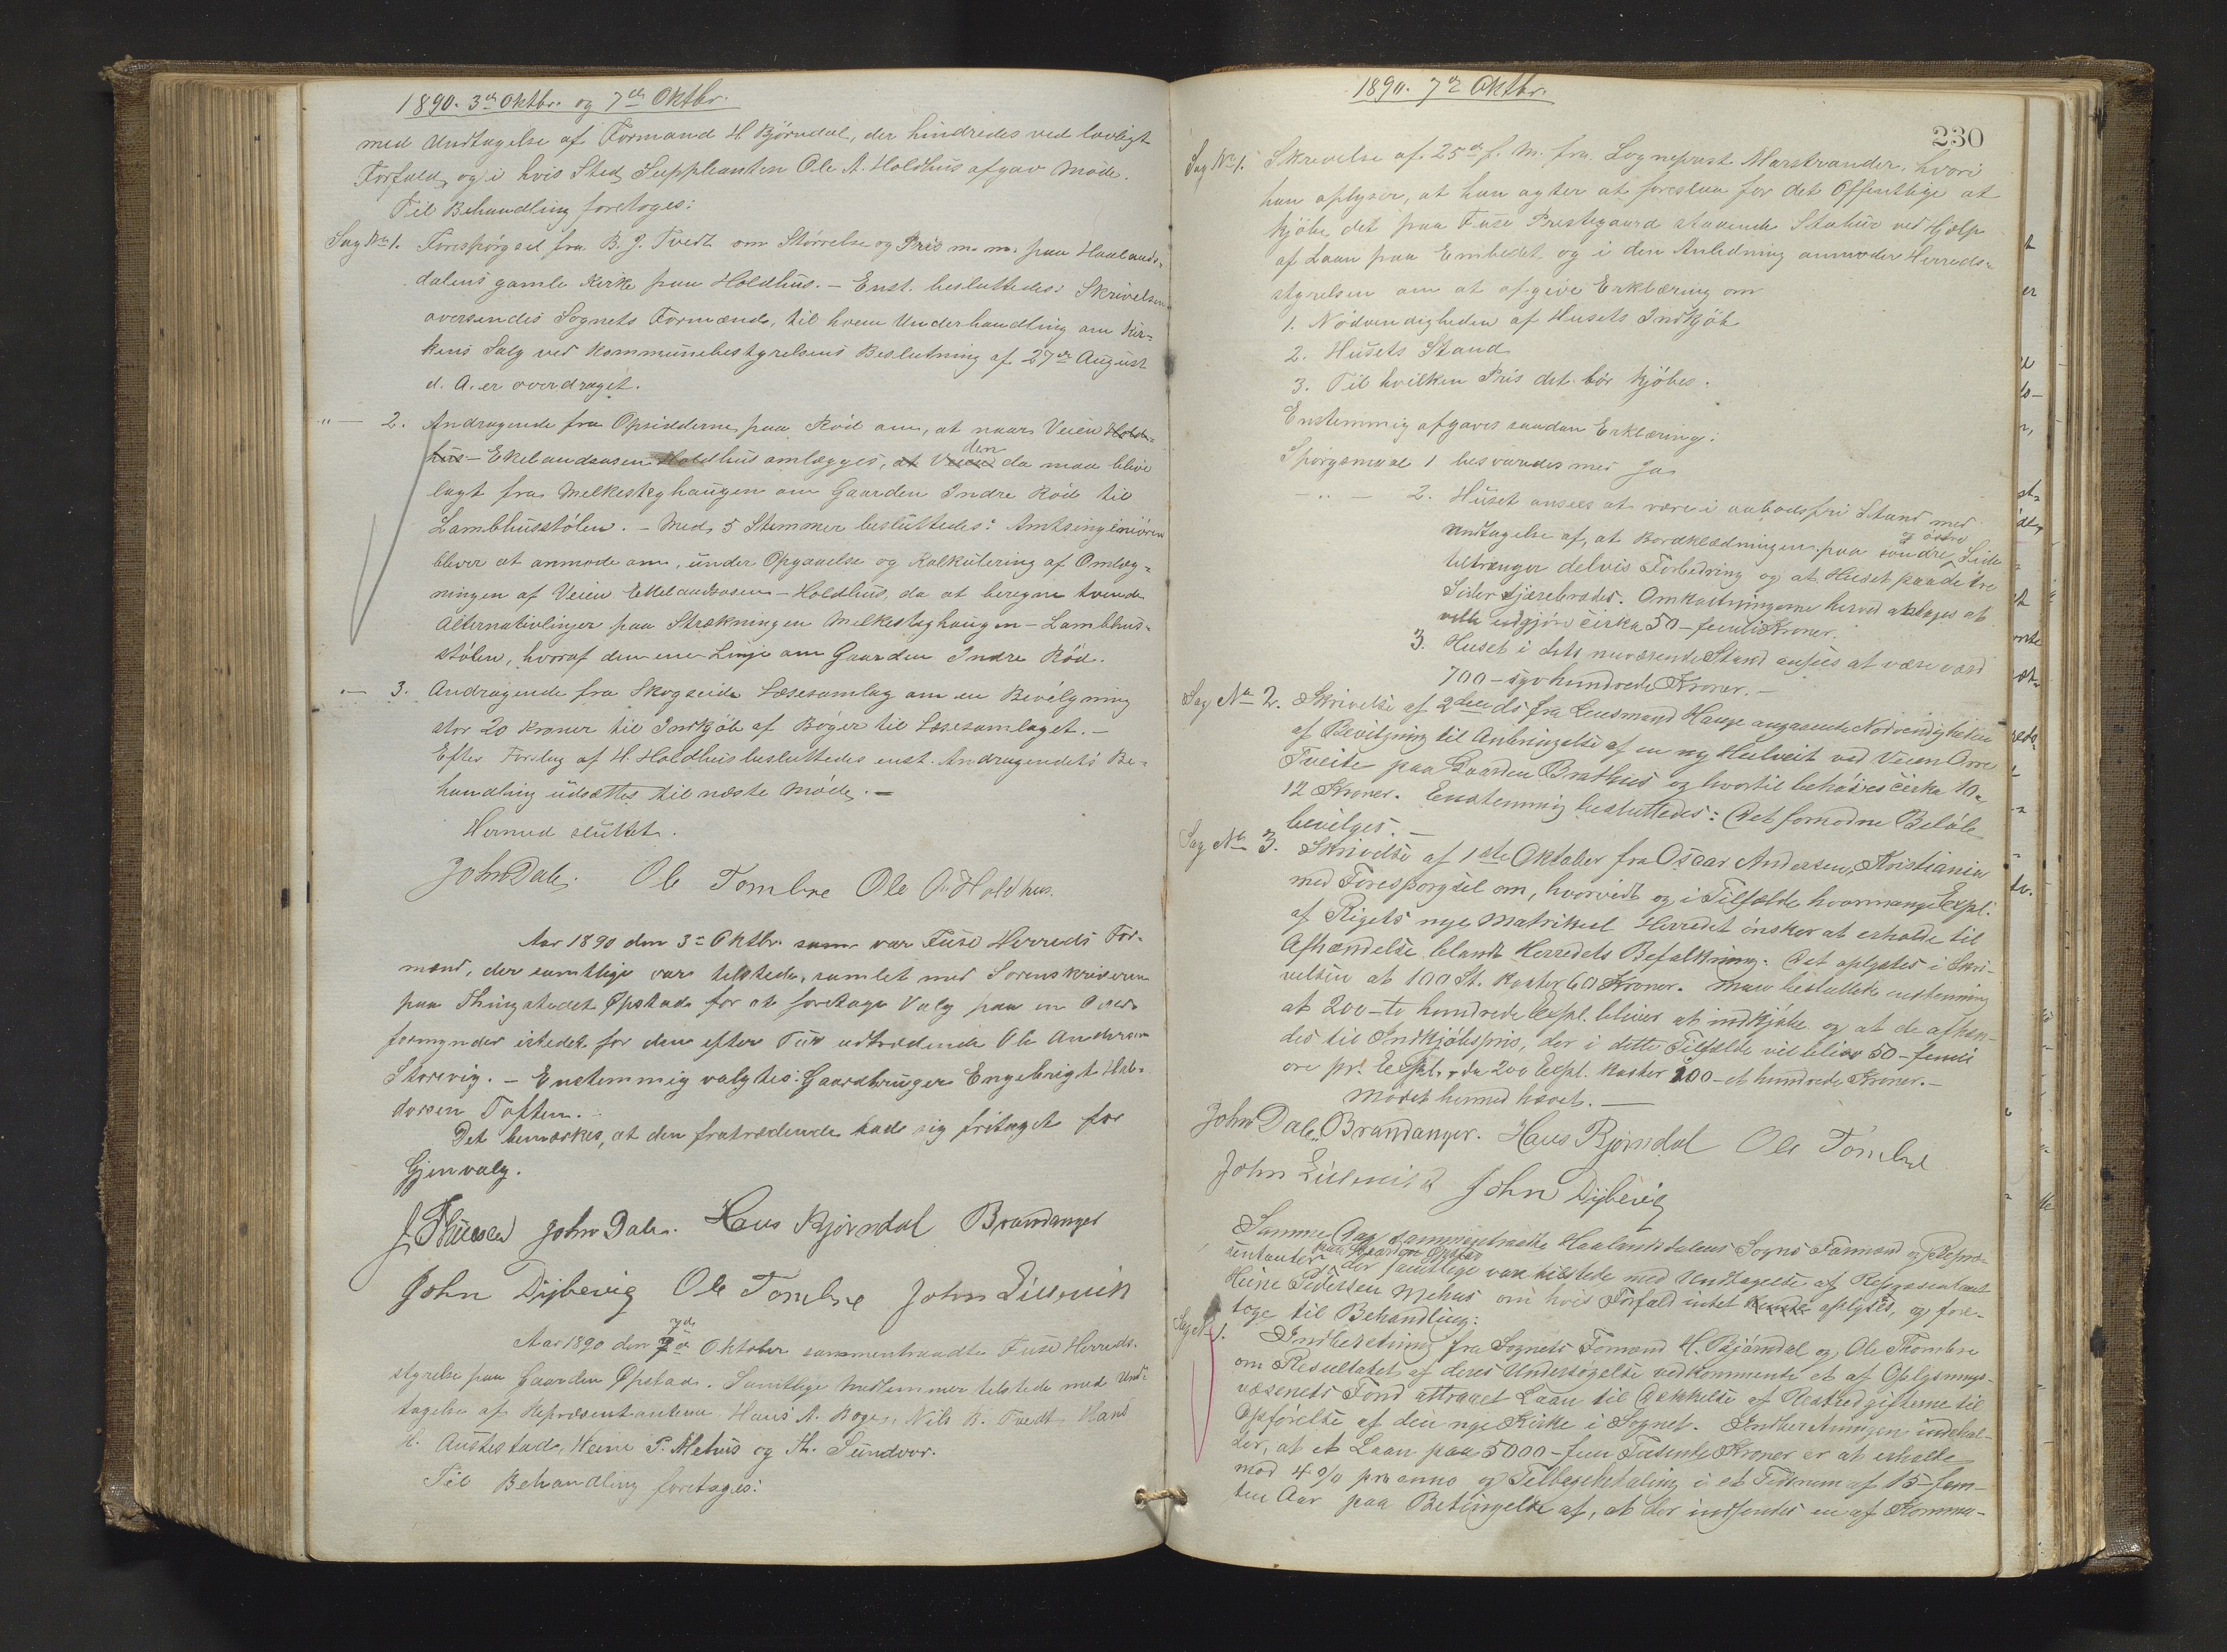 1890. 3die Oktbr. og 7de Oktbr.
med Undtagelse af Formand H. Bjørndal, der hindredes ved lovligt
Forfald, og i hvis Sted Suppleanten Ole A. Holdhus afgav Møde.
Til Behandling foretoges:
Sag No 1. Forespørgsel fra B. J. Tvedt om Størrelse og Pris m. m. paa Haalands-
dalens gamle Kirke paa Holdhus. – Enst. besluttedes: Skrivelsen
oversendes Sognets Formænd, til hvem Underhandling om Kir-
kens Salg ved Kommunebestyrelsens Beslutning af 27de August
d. A. er overdraget.
" — 2. Andragende fra Opsidderne paa Rød om, at naar Veien Hold-
hus – Ekelandsosen Holdhus omlægges, at Veien den da maa blive
lagt fra Melkesteghaugen om Gaarden Indre Rød til
Lambhusstølen. – Med 5 Stemmer besluttedes: Amtsingeniøren
bliver at anmode om, under Opgaaelse og Kalkulering af Omlæg-
ningen af Veien Ekelandsosen – Holdhus, da at beregne tvende
Alternativlinjer paa Strækningen Melkesteghaugen – Lambhus-
stølen, hvoraf den ene Linje om Gaarden Indre Rød.
" — 3. Andragende fra Skogseide Læsesamlag om en Bevilgning
stor 20 Kroner til Indkjøb af Bøger til Læsesamlaget. –
Efter Forslag af H. Holdhus besluttedes enst. Andragendets Be-
handling udsættes til næste Møde. –
Hermed sluttet.
John Dale. Ole Tombre Ole A. Holdhus.
Aar 1890 den 3die Oktbr. sam var Fuse Herreds For-
mænd, der samtlige vare tilstede, samlet med Sorenskriveren
paa Thingstedet Opstad for at foretage Valg paa en Over-
formynder istedet for den efter Tur udtrædende Ole Andersen
Storevig. – Enstemmig valgtes: Gaardbruger Engebrigt Hal-
dorsen Toften.
Det bemærkes, at den fratrædende bad sig fritaget for
Gjenvalg.
John Dale. Hans Bjørndal Brandanger
John Dybevig Ole Tombre John Lillevik
Aar 1890 den 7de 7de Oktober sammentraadte Fuse Herreds-
styrelse paa Gaarden Opstad. Samtlige Medlemmer tilstede med Und-
tagelse af Repræsentanterne Hans A. Boge, Nils B. Tvedt, Hans
H. Austestad, Heine P. Mehus og Th. Sundvor.
Til Behandling foretoges:
1890. 7de Oktbr.
230
Sag No 1. Skrivelse af 25de f. M. fra Sogneprest Marstrander, hvori
han oplyser, at han agter at foreslaa for det Offentlige at
kjøbe det paa Fuse Prestegaard staaende Stahus ved Hjælp
af Laan paa Embedet, og i den Anledning anmoder Herreds-
styrelsen om at afgive Erklæring om
1. Nødvendigheden af Husets Indkjøb
2. Husets Stand
3. Til hvilken Pris det bør kjøbes.
Enstemmig afgaves saadan Erklæring:
Spørgsmaal 1 besvaredes med Ja
— " — 2. Huset ansees at være i aabodsfri Stand med
Undtagelse af, at Bordklædningen paa søndre og østre Side
tiltrænger delvis Forbedring og at Huset paa de tre
Sider tjærebredes. Omkostningerne herved antages at
ville udgjøre cirka 50 – femti Kroner.
3. Huset i dets nuværende Stand ansees at være værd
700 – syv hundrede Kroner. –
Sag No 2. Skrivelse af 2den ds fra Lensmand Hauge angaaende Nødvendigheden
af Bevilgning til Anbringelse af en ny Hulveit ved Veien Ovre
Tveite paa Gaarden Brathus og hvortil behøves cirka 10 –
12 Kroner. Enstemmig besluttedes: Det fornødne Beløb
bevilges. –
Sag No 3. Skrivelse af 1ste Oktober fra Oscar Andersen, Kristiania
med Forespørgsel om, hvorvidt og i Tilfælde hvormange Expl.
af Rigets nye Matrikul Herredet ønsker at erholde til
Afhændelse blandt Herredets Befolkning. Det oplystes i Skri-
velsen at 100 St. koster 60 Kroner. Man besluttede enstemmig
at 200 – to hundrede Expl. bliver at indkjøbe og at de afhæn-
des til Indkjøbspris, der i dette Tilfælde vil blive 50 – femti
øre pr. Expl., da 200 Expl. koster 100 – et hundrede Kroner. –
Mødet hermed hævet. –
John Dale. Brandanger. Hans Bjørndal Ole Tombre
John Lillevik John Dybevig
Samme Dag sammentraadte Haalandsdalens Sogns Formænd og Repræ-
sentanter paa Gaarden Opstad, der samtlige vare tilstede med Undtagelse af Repræsentant
Heine Pedersen Mehus om hvis Forfald intet kunde oplystes, og fore-
toge til Behandling:
Sag No 1. Indberetning fra Sognets Formænd H. Bjørndal og Ole Thombre
om Resultatet af deres Undersøgelse vedkommende et af Oplysnings-
væsenets Fond attraaet Laan til Dækkelse af Restudgifterne til
Opførelse af den nye Kirke i Sognet. Indberetningen indehol-
der, at et Laan paa 5000 – fem Tusinde Kroner er at erholde
mod 4 % pro anno og Tilbagebetaling i et Tidsrum af 15 – fem-
ten Aar paa Betingelse af, at der indsendes en af Kommu-